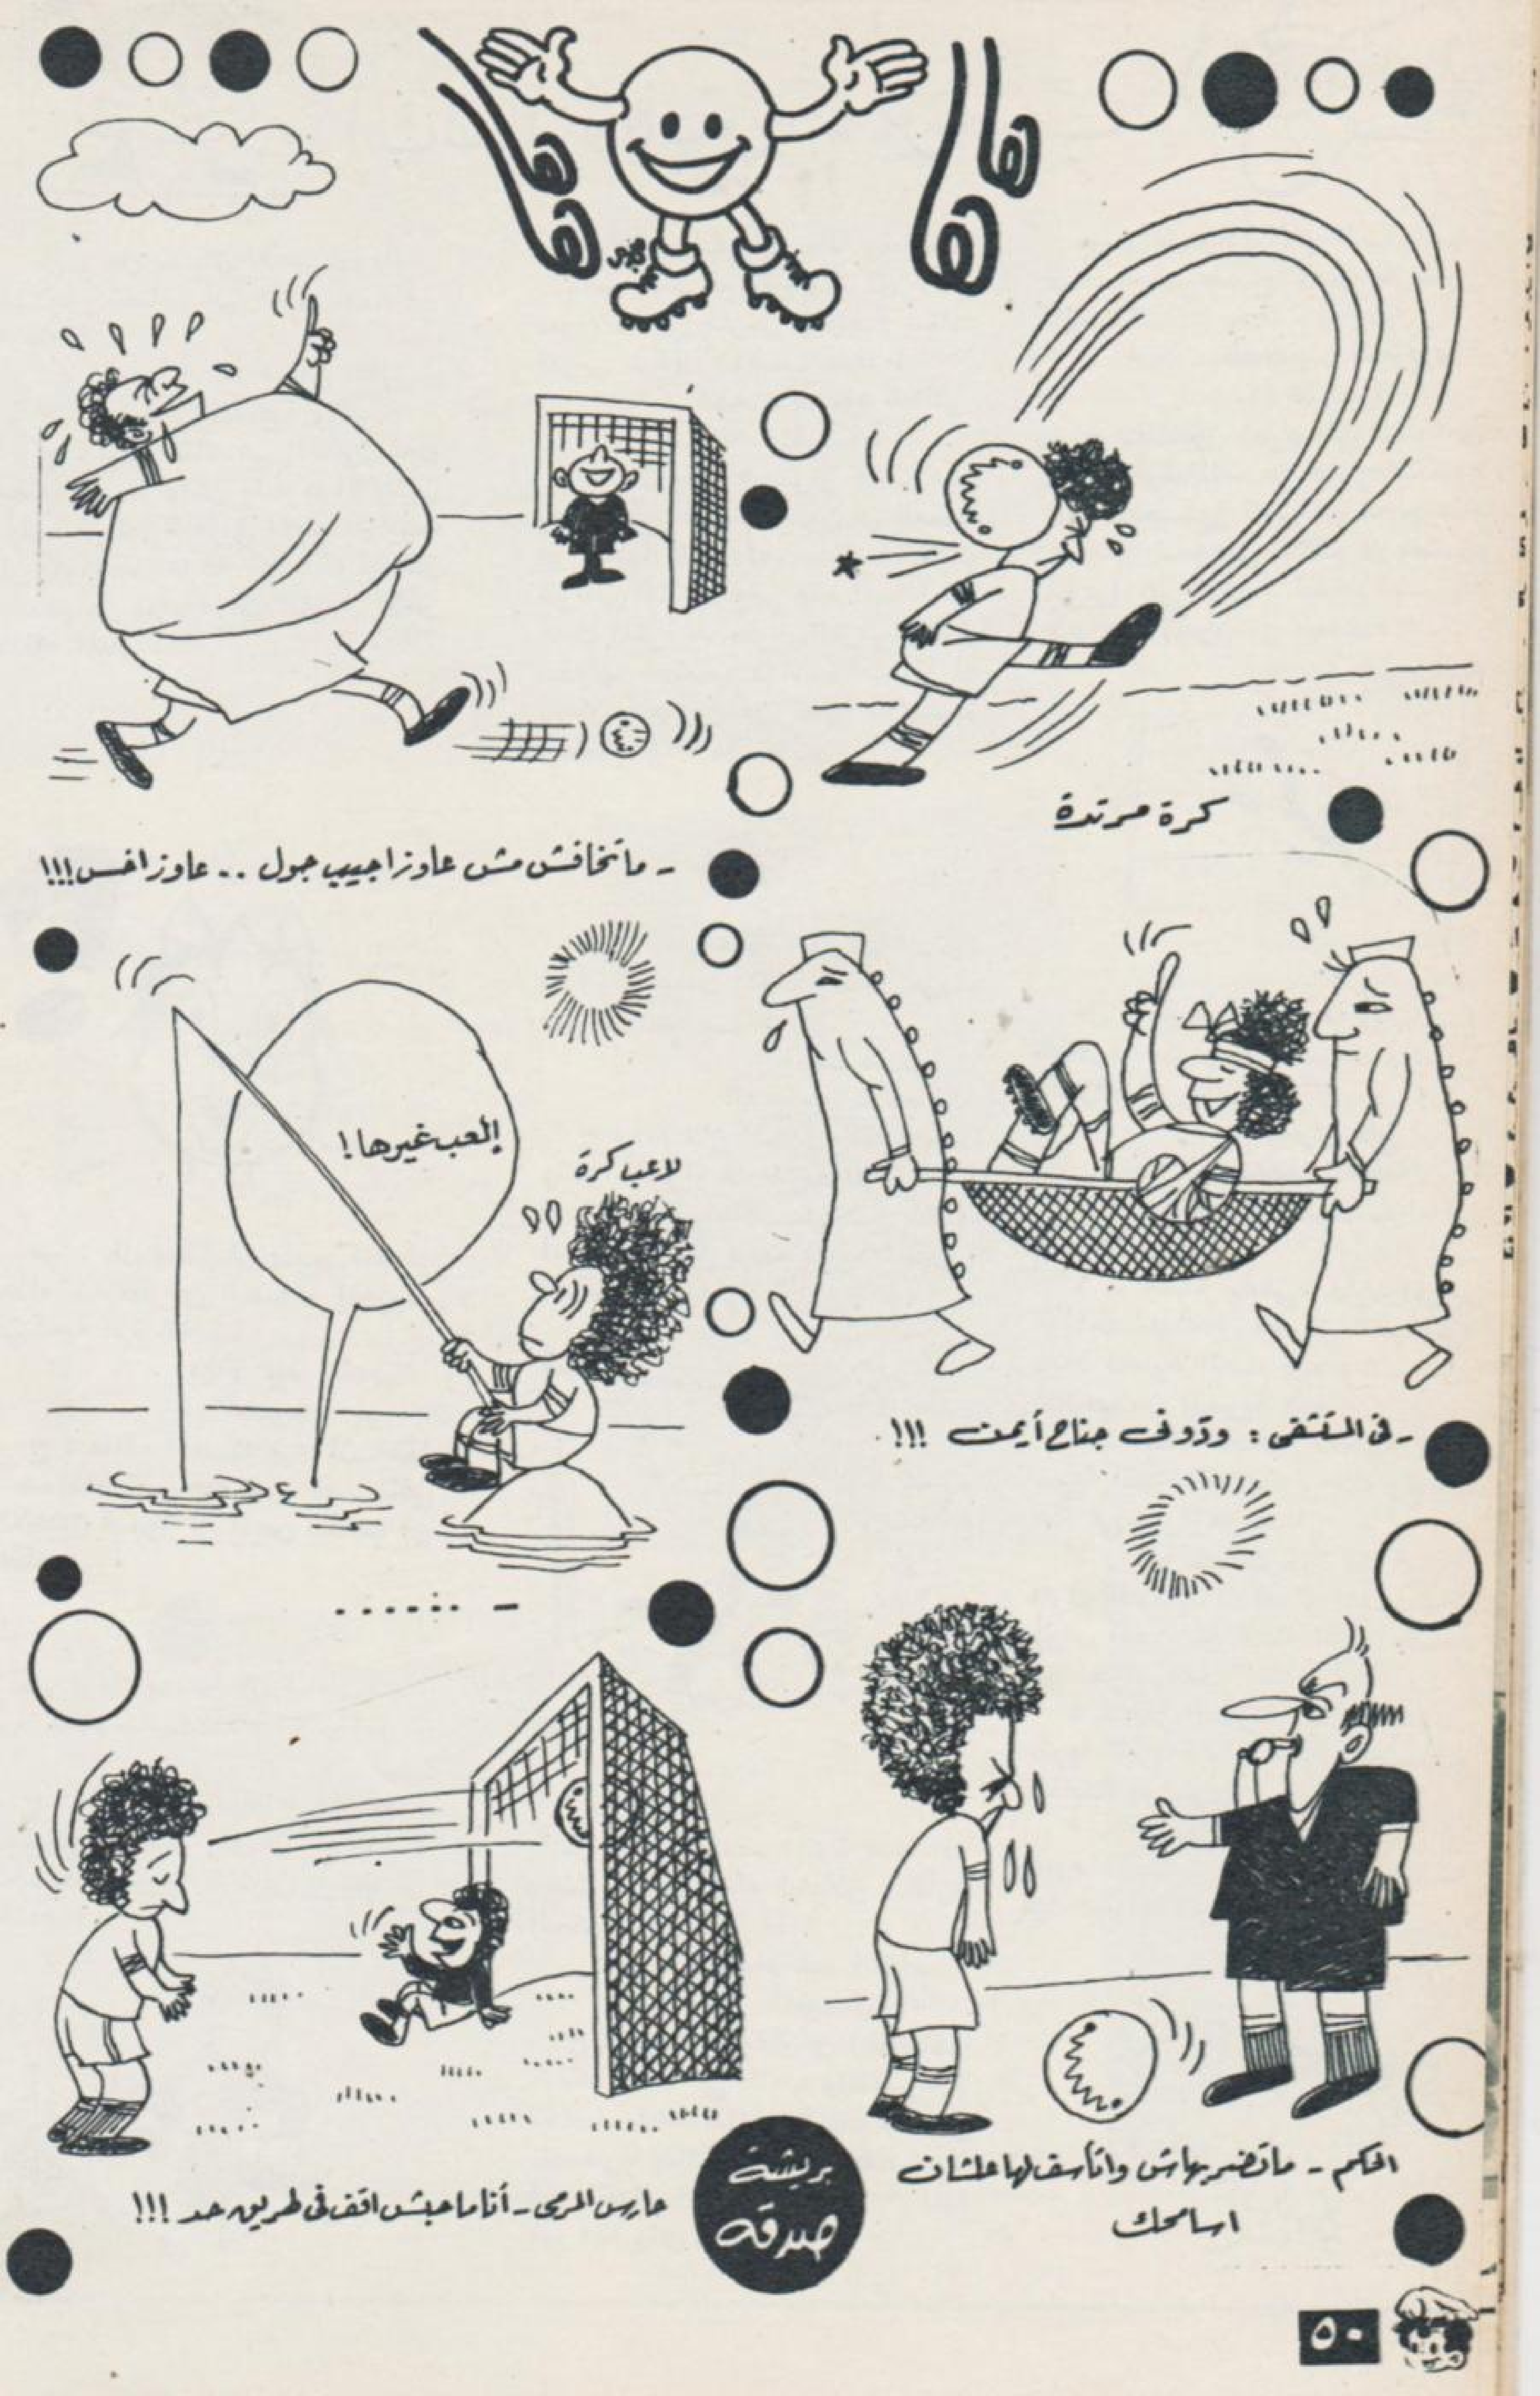 ها ها
ها ها
كرة مرتدة
- ماتخافش مش عاوز اجيب جول .. عاوز اخس !!!
- فى المستشفى : ودّونى جناح أيمن !!!
إلعب غيرها !
لاعب كرة
- ......
الحكم - ماتضربهاش واتأسف لها علشان
اسامحك
حارس المرمى - أنا ما حبش اقف فى طريق حد !!!
بريشة
صدقه
٥٠